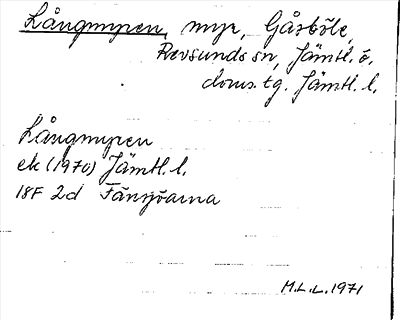 Långmyren, myr, Gåsböle,
Revsunds sn, Jämtl. ö.
doms. tg. Jämtl. l.
Långmyren
ek (1970) Jämtl. l.
18F 2d Fängöarna
M.L.L. 1971